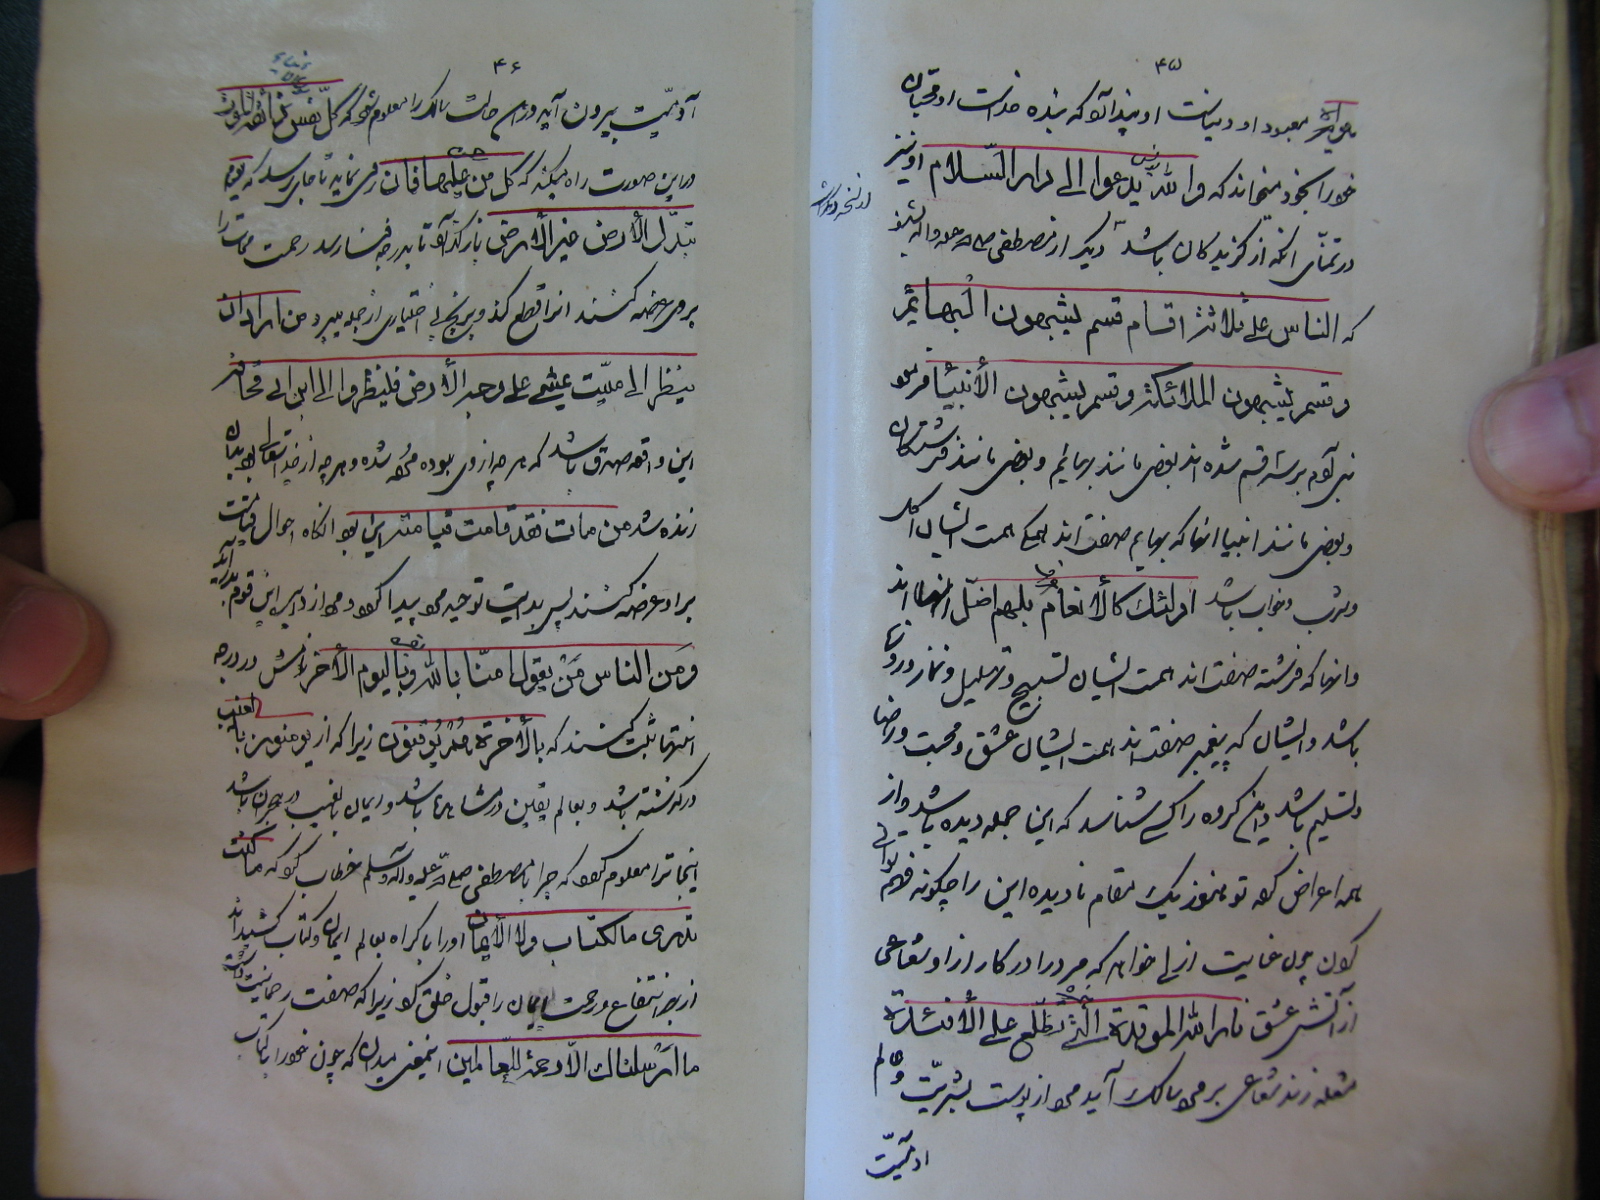 ۴۵
معبود او و نیات او پیدا آنکه بنده خداست او محبان
خود را بخود میخواند که والله یدعوا الی دار السلام او نیز
در تمنای آنکه از گزیدگان باشد دیگر از مصطفی صلی الله علیه و آله بشنو
در نسخه دیگر
که الناس علی ثلاثة اقسام قسم یشبهون البهائم
و قسم یشبهون الملائکة و قسم یشبهون الأنبیاء فرمود
بنی آدم بر سه قسم شده اند بعضی مانند بهایم و بعضی مانند فرشتگان
و بعضی مانند انبیا آنها که بهایم صفت اند همگی همت ایشان اکل
و شرب و خواب باشد اولئک کالأنعام بل هم اضل آنها اند
و آنها که فرشته صفت اند همت ایشان تسبیح و تهلیل و نماز و روزه
باشد و ایشان که پیغمبر صفت اند همت ایشان عشق و محبت و رضا
و تسلیم باشد و این گروه را کسی شناسد که این جمله دیده باشد و از
همه اعراض کرده تو هنوز یک مقام نادیده این را چگونه فهم توانی
کردن چون عنایت ازلی خواهد که مرد را در کار ازاو شعاعی
از آتش عشق نار الله الموقدة الّتی تطّلع علی الأفئدة
شعله زند شعاعی بر مرد سالک آید مرد از پوست بشریّت و عالم
آدمیّت
۴۶
آدمیّت بیرون آید در این حالت سالک را معلوم شود که کلّ نفس ذائقة الموت
در این صورت راه میکند که کل من علیها فان ترقی نماید تا جای رسد که یوم
تبدّل الأرض غیر الأرض باز گذارد تا بدرجه فنا رسد رحمت
بر وی عرضه کنند انرا قطع کند و بی اختیاری از جمله ببرد من اراد ان
ینظر الی میّت یمشی علی وجه الأرض فلینظر الی ابن ابی قحافه
این واقعه صدق باشد که هر چه از وی بوده محو شده و هر چه از خدا تعالی بود بدان
زنده شد من مات فقد قامت قیامته این بود انگاه احوال قیامت
بر او عرضه کنند پس بدایت توحید مرد پیدا گردد و مرد از دایره این قوم بدر آید
و من الناس من یقول امنّا بالله و بالیوم الأخر درجه
انتها ثبت کنند که بالأخرة هم یوقنون زیرا که از یومنون بالغیب
در گذشته باشد و بعالم یقین در مشاهده باشد و ایمان بالغیب در هجران باشد
اینجا ترا معلوم گردد که چرا با مصطفی صلی الله علیه و آله و سلم خطاب کرد که ما کنت
تدری ما الکتاب و لا الأیمان او را با کراه بعالم ایمان و کتاب کشیدند
از بهر انتفاع و رحمت ایمان را قبول خلق کرد زیرا که صفت رحمانیت داشت
ما ارسلناک الّا رحمة للعالمین اینمعنی میدان که چون خود را